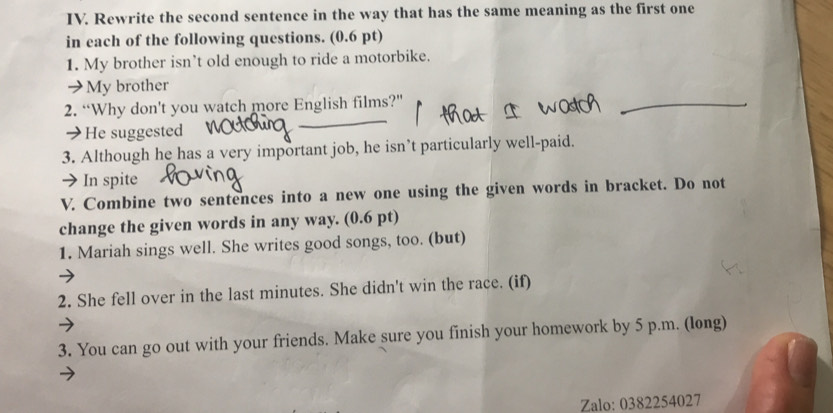 IV. Rewrite the second sentence in the way that has the same meaning as the first one
in each of the following questions. (0.6 pt)
1. My brother isn't old enough to ride a motorbike.
→ My brother
2. “Why don't you watch more English films?"
→ He suggested watching / that I watch
3. Although he has a very important job, he isn't particularly well-paid.
→ In spite having
V. Combine two sentences into a new one using the given words in bracket. Do not
change the given words in any way. (0.6 pt)
1. Mariah sings well. She writes good songs, too. (but)
→
2. She fell over in the last minutes. She didn't win the race. (if)
→
3. You can go out with your friends. Make sure you finish your homework by 5 p.m. (long)
→
Zalo: 0382254027